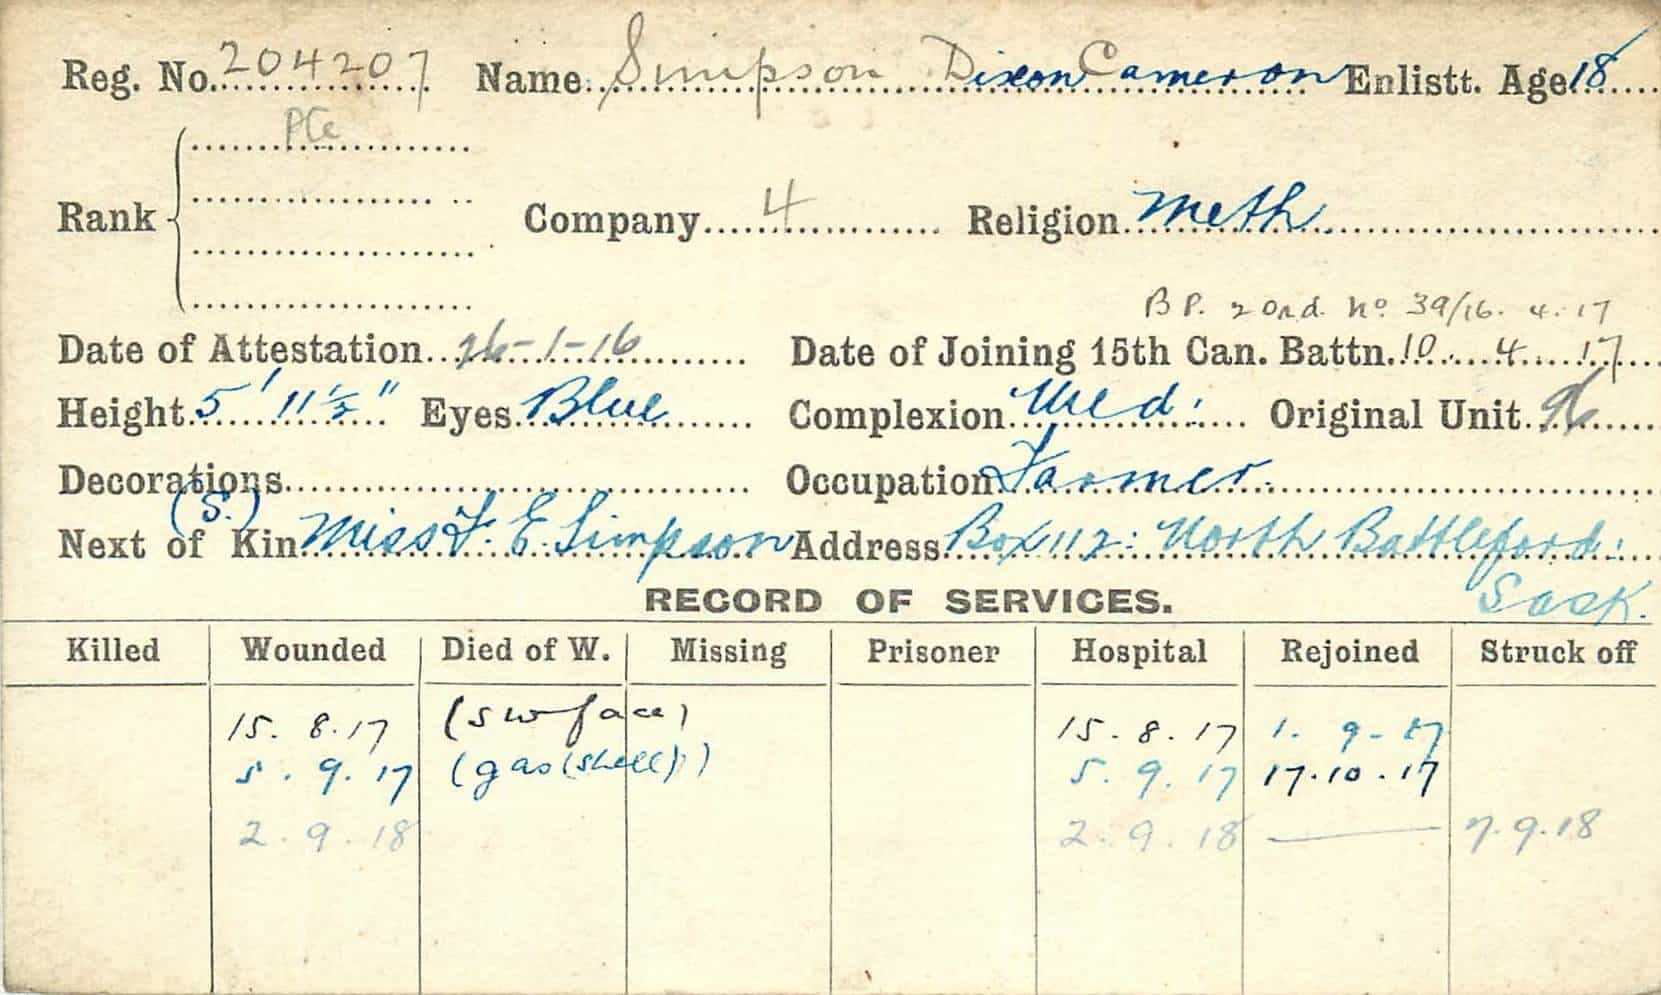 Reg. No. 204207 Name Simpson Dixon Cameron Enlistt. Age 18
Pte
Rank Company 4 Religion Meth.
B P. 2 Ord. No 39/16. 4. 17
Date of Attestation 26-1-16 Date of Joining 15th Can. Battn. 10 4 17
Height 5' 11½" Eyes Blue Complexion Med: Original Unit 96
Decorations Occupation Farmer.
(S.)
Next of Kin Miss F. E. Simpson Address Box 112: North Battleford:
Sask.
RECORD OF SERVICES.
Killed Wounded Died of W. Missing Prisoner Hospital Rejoined Struck off
15. 8. 17 (sw face) 15. 8. 17 1. 9 - 17
5. 9. 17 (gas (shell)) 5. 9. 17 17.10.17
2. 9. 18 2. 9. 18 — 7.9.18